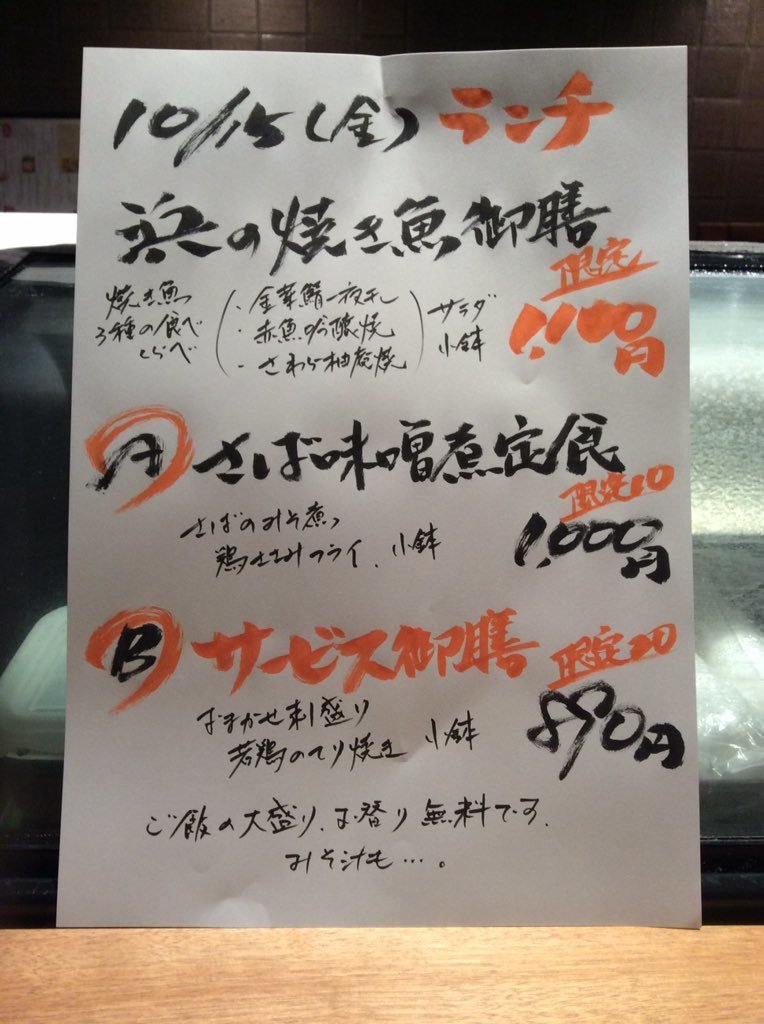 10/15(金) ランチ
浜の焼き魚御膳
限定
1,100円
焼き魚
3種の食べ
くらべ
・金華鯖一夜干し
・赤魚吟醸焼
・さわら柚庵焼
サラダ
小鉢
A さば味噌煮定食
限定10
1,000円
さばのみそ煮
鶏ささみフライ、小鉢
B サービス御膳
限定20
890円
おまかせ刺盛り
若鶏のてり焼き 小鉢
ご飯の大盛り、お替り無料です、
みそ汁も…。